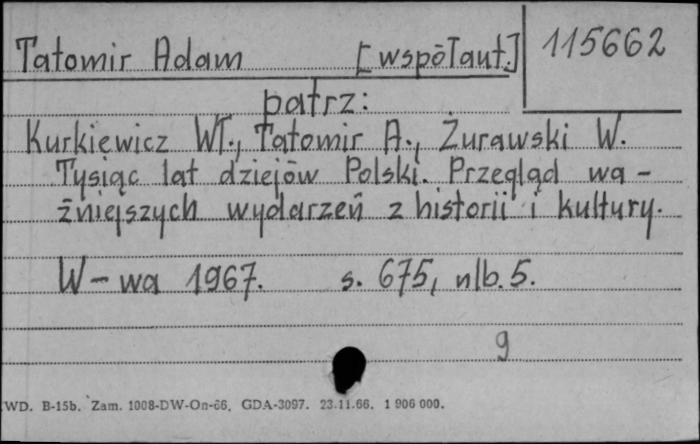 Tatomir Adam [współaut.] 115662
patrz:
Kurkiewicz Wł., Tatomir A., Żurawski W.
Tysiąc lat dziejów Polski. Przegląd wa-
żniejszych wydarzeń z historii i kultury.
W-wa 1967. s. 675, nlb. 5.
9
WD. B-15b. Zam. 1008-DW-On-66. GDA-3097. 23.11.66. 1 906 000.